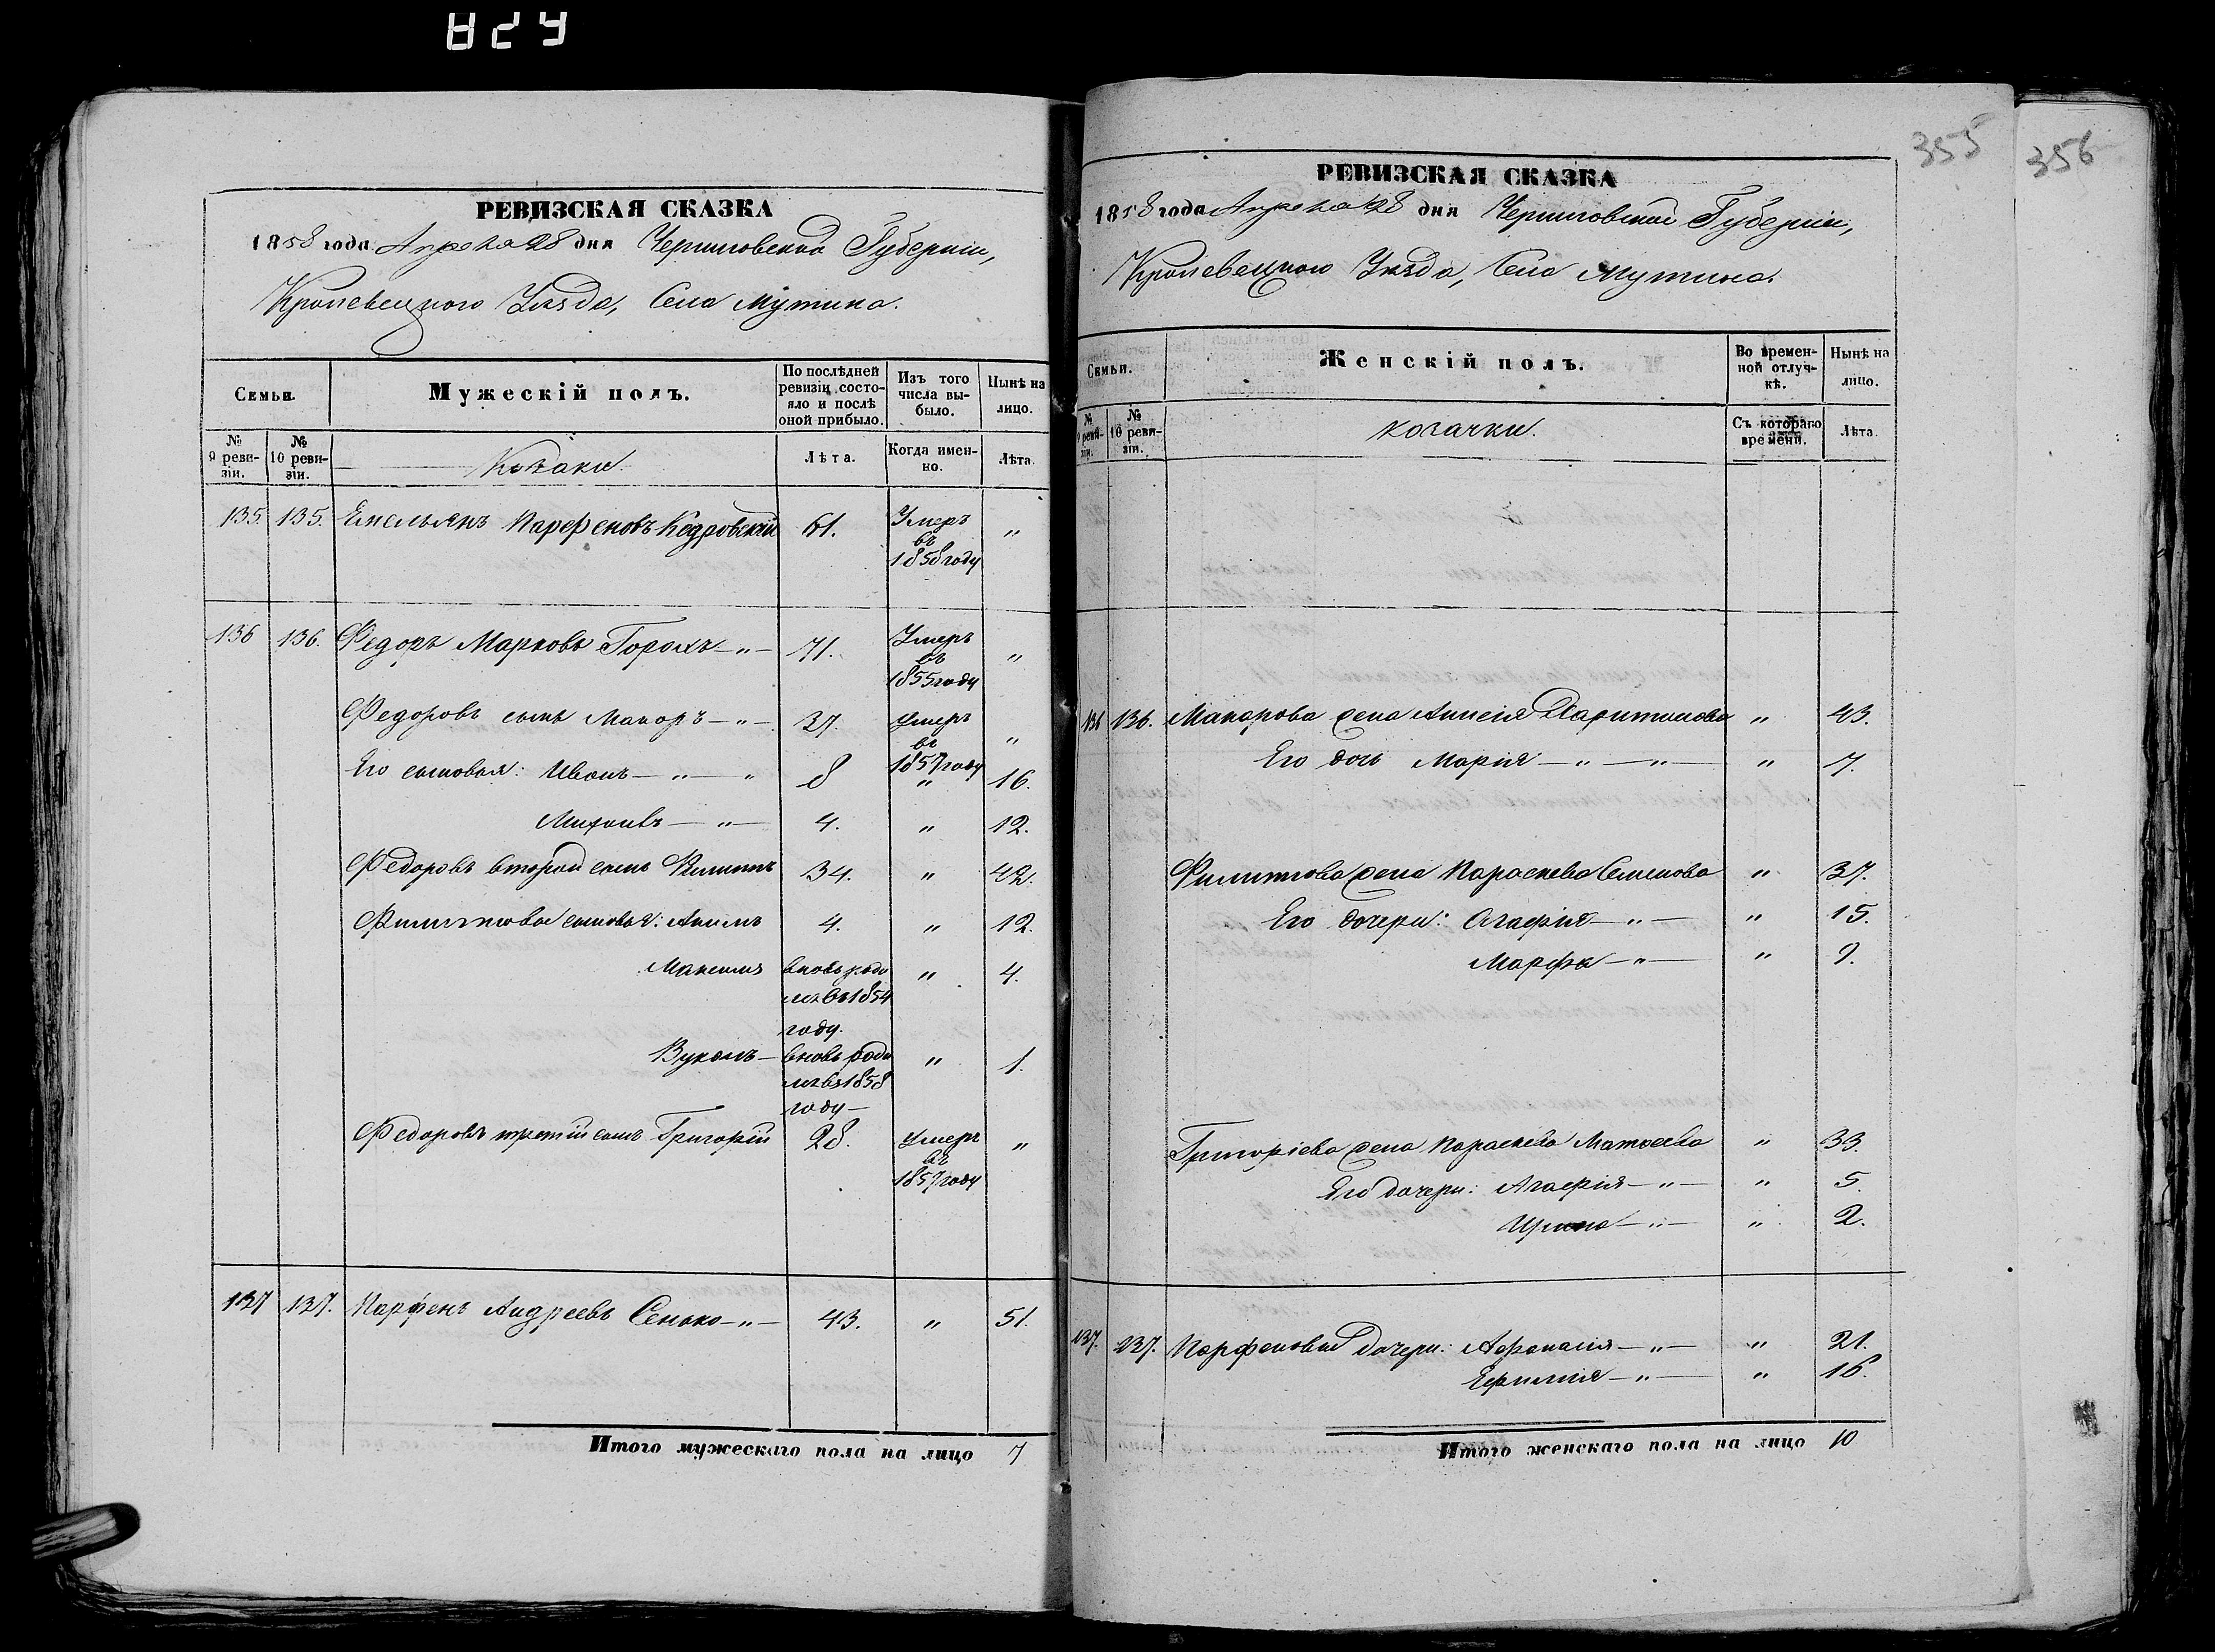 829
355
356
РЕВИЗСКАЯ СКАЗКА
1858 года Апреля 28 дня Черниговской Губерніи,
Кролевецкого Уѣзда, Села Мутина.
Семьи.
Мужескій полъ.
По послѣдней ревизіи состояло и послѣ оной прибыло.
Изъ того числа выбыло.
Нынѣ на лицо.
№ 9 ревизіи.
№ 10 ревизіи.
Козаки.
Лѣта.
Когда именно.
Лѣта.
135. 135. Емельянъ Парфеновъ Кедровскій 61. Умеръ въ 1858 году "
136 136. Федоръ Марковъ Горохъ —"— 71. Умеръ въ 1855 году "
Федоровъ сынъ Макаръ —"— 37. Умеръ въ 1857 году "
Его сыновья: Иванъ —"— " 8 " 16.
Михаилъ —"— 4. " 12.
Федоровъ второй сынъ Филиппъ 34. " 42.
Филиппова сыновья: Акимъ 4. " 12.
Максимъ вновь родился въ 1854 году. " 4.
Вуколъ — вновь родился въ 1858 году — " 1.
Федоровъ третій сынъ Григорій 28. Умеръ въ 1857 году "
137 137. Парфенъ Андреевъ Сенько —"— 43. " 51.
Итого мужескаго пола на лицо 7
РЕВИЗСКАЯ СКАЗКА
1858 года Апреля 28 дня Черниговской Губерніи,
Кролевецкого Уѣзда, Села Мутина.
Семьи.
Женскій полъ.
Во временной отлучкѣ.
Нынѣ на лицо.
№ 9 ревизіи.
№ 10 ревизіи.
Козачки.
Съ котораго времени.
Лѣта.
136 136. Макарова жена Харитинова " 43.
Его дочь Марія —"— —"— " 7.
Филиппова жена Параскева Семенова " 37.
Его дочери: Агафія —"— " 15.
Марфа —"— " 9.
Григоріева жена Параскева Матвеева " 33.
Его дочери: Агафія —"— " 5.
Ирина —"— " 2.
137. 137. Парфеновы дочери: Афанасія —"— " 21.
Ефимія —"— " 16.
Итого женскаго пола на лицо 10